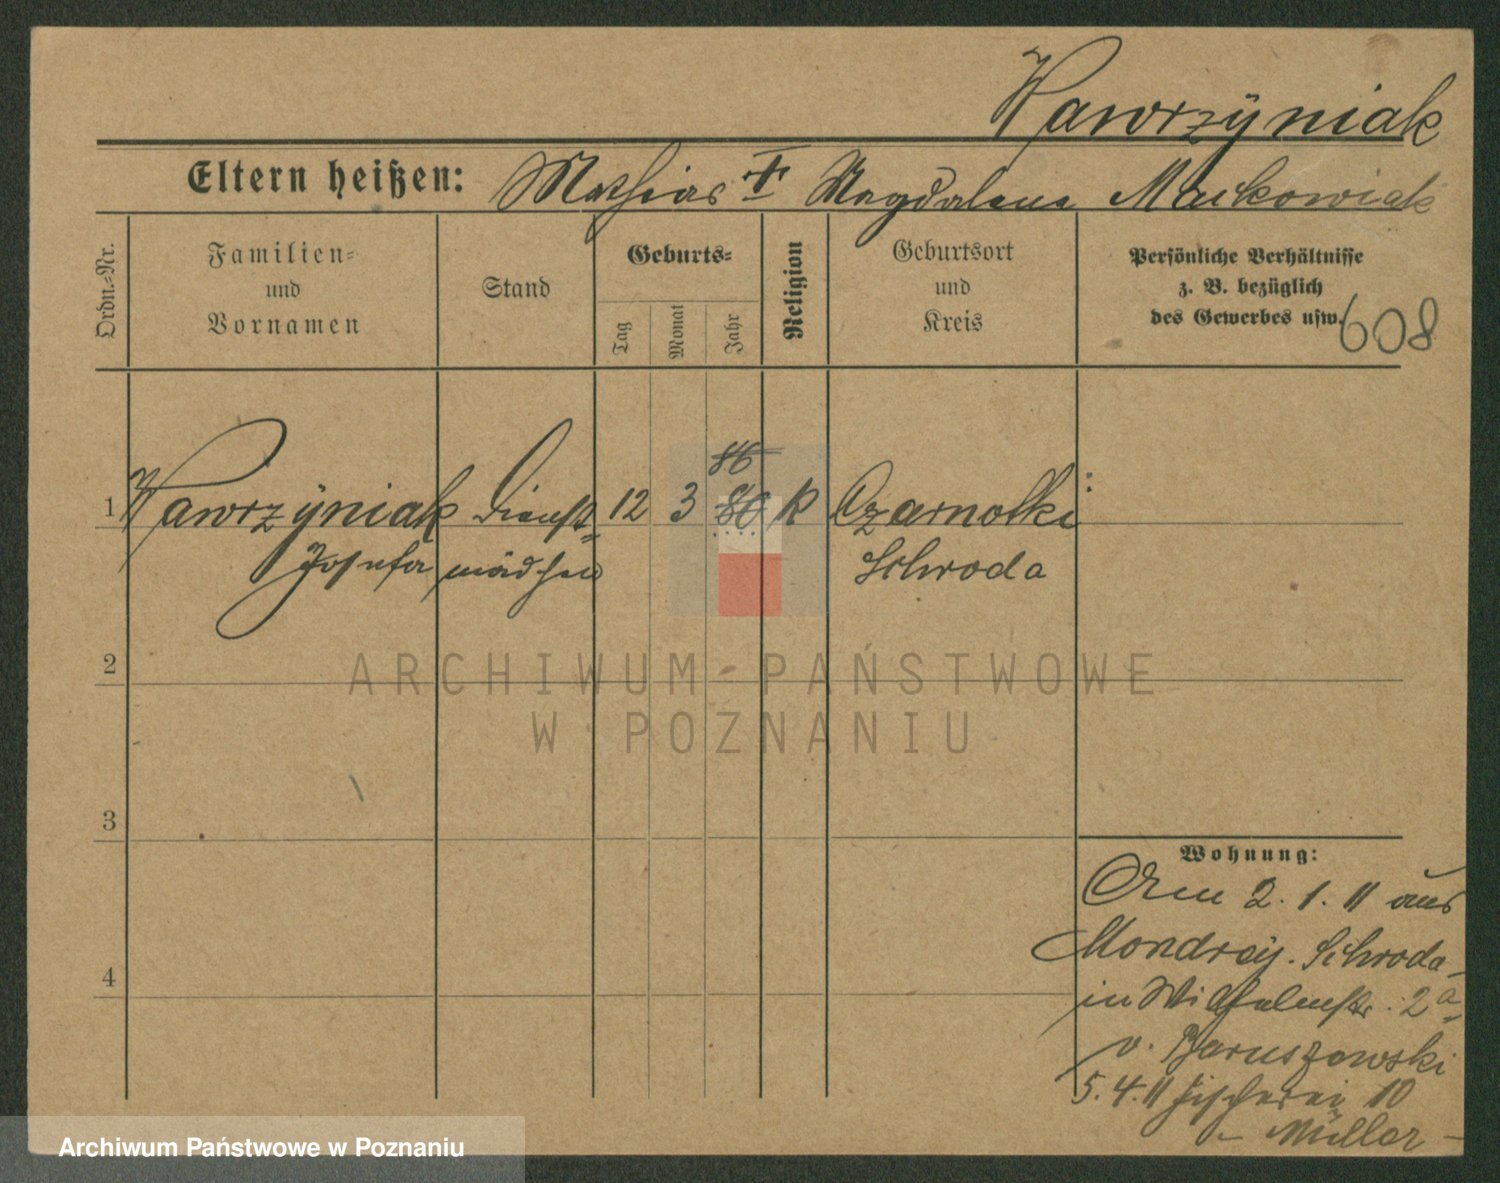 Wawrzÿniak
Eltern heißen: Mathias † Magdalena Maikowiak
Ordn.-Nr.
Familien-
und
Vornamen
Stand
Geburts-
Tag
Monat
Jahr
Religion
Geburtsort
und
Kreis
Persönliche Verhältnisse
z. B. bezüglich
des Gewerbes usw.
608
86
1 Wawrzÿniak Dienst- 12 3 86 K Czarnotki
Josefa mädchen Schroda
2
ARCHIWUM PAŃSTWOWE
W POZNANIU
3
Wohnung:
2.1.11 aus
Mondrey. Schroda
in Wilhelmstr. 2a
v. Baruszowski
4
5.4.11 Fischerei 10
– Müller –
Archiwum Państwowe w Poznaniu